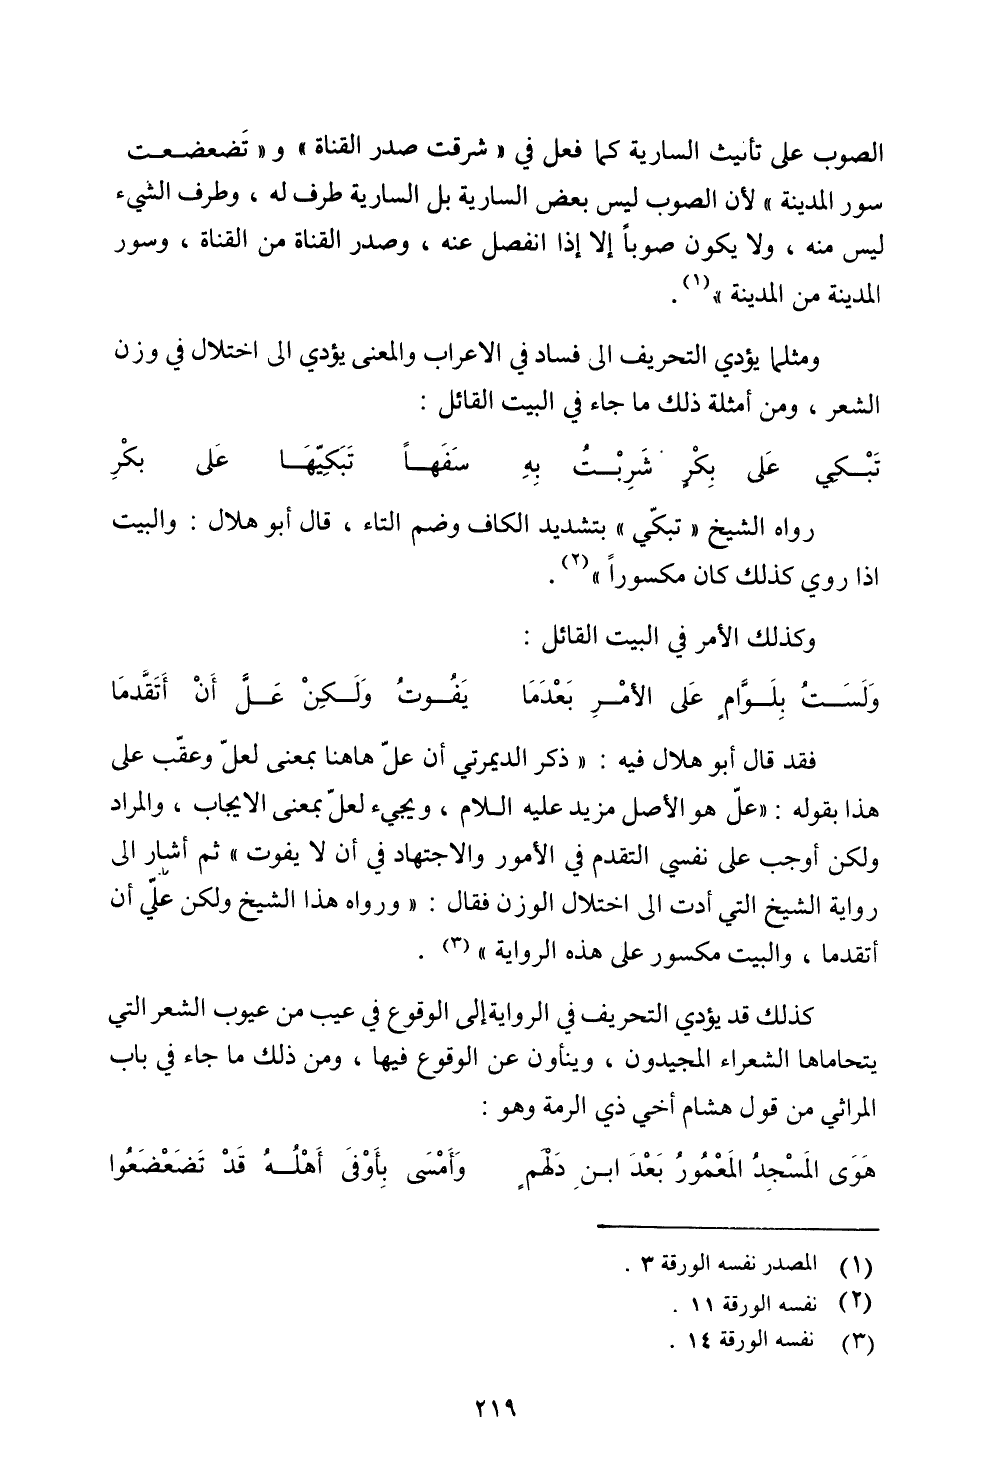 الصوب على تأنيث السارية كما فعل في « شرقت صدر القناة » و « تَضعضعت
سور المدينة » لأن الصوب ليس بعض السارية بل السارية طرف له ، وطرف الشيء
ليس منه ، ولا يكون صوباً إلا إذا انفصل عنه ، وصدر القناة من القناة ، وسور
المدينة من المدينة »(١) .
ومثلما يؤدي التحريف الى فساد في الاعراب والمعنى يؤدي الى اختلال في وزن
الشعر ، ومن أمثلة ذلك ما جاء في البيت القائل :
تَبْكِي عَلى بِكْرٍ شَرِبْتُ بِهِ سَفَهاً تَبَكِيّهَا عَلى بكْرِ
رواه الشيخ « تبكّي » بتشديد الكاف وضم التاء ، قال أبو هلال : والبيت
اذا روي كذلك كان مكسوراً »(٢) .
وكذلك الأمر في البيت القائل :
وَلَسَتُ بِلَوَّامٍ عَلى الأمْرِ بَعْدَمَا يَفُوتُ وَلَكِنْ عَلَّ أنْ أتَقَّدمَا
فقد قال أبو هلال فيه : « ذكر الديمرتي أن علّ هاهنا بمعنى لعلّ وعقّب على
هذا بقوله : «علّ هو الأصل مزيد عليه اللام ، ويجيء لعلّ بمعنى الايجاب ، والمراد
ولكن أوجب على نفسي التقدم في الأمور والاجتهاد في أن لا يفوت » ثم أشار الى
رواية الشيخ التي أدت الى اختلال الوزن فقال : « ورواه هذا الشيخ ولكن علّي أن
أتقدما ، والبيت مكسور على هذه الرواية »(٣) .
كذلك قد يؤدي التحريف في الروايةإلى الوقوع في عيب من عيوب الشعر التي
يتحاماها الشعراء المجيدون ، وينأون عن الوقوع فيها ، ومن ذلك ما جاء في باب
المراثي من قول هشام أخي ذي الرمة وهو :
هَوَى المَسْجِدُ المَعْمُورُ بَعْدَ ابنِ دَلْهَمٍ وَأَمْسَى بِأَوْفَى أَهْلُهُ قَدْ تَضَعْضَعُوا
(١) المصدر نفسه الورقة ٣ .
(٢) نفسه الورقة ١١ .
(٣) نفسه الورقة ١٤ .
٢١٩